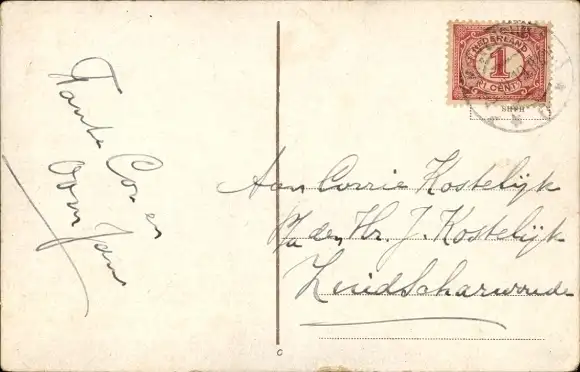 Tante Cor en
Oom Jan
NEDERLAND
1
CENT
Aan Corrie Kostelijk
p/a den Hr. J. Kostelijk
Zuidscharwoude